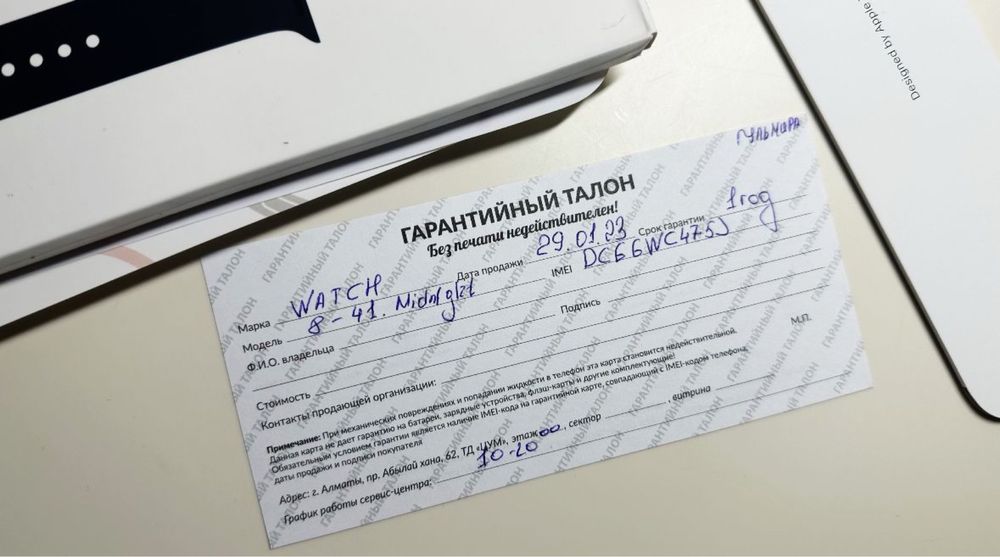 Designed by Apple
Гульмира
ГАРАНТИЙНЫЙ ТАЛОН
Без печати недействителен!
Дата продажи 29.01.23 Срок гарантии 1год
Марка WATCH IMEI DC66WC475J
Модель 8-41. Midnight
Ф.И.О. владельца Подпись
Стоимость М.П.
Контакты продающей организации:
Примечание: При механических повреждениях и попадании жидкости в телефон эта карта становится недействительной.
Данная карта не дает гарантию на батарей, зарядные устройства, флэш-карты и другие комплектующие!
Обязательным условием гарантии является наличие IMEI-кода на гарантийной карте, совпадающий с IMEI-кодом телефона,
даты продажи и подписи покупателя
Адрес: г. Алматы, пр. Абылай хана, 62, ТД «ЦУМ», этаж, сектор, витрина
График работы сервис-центра: 10-20 00